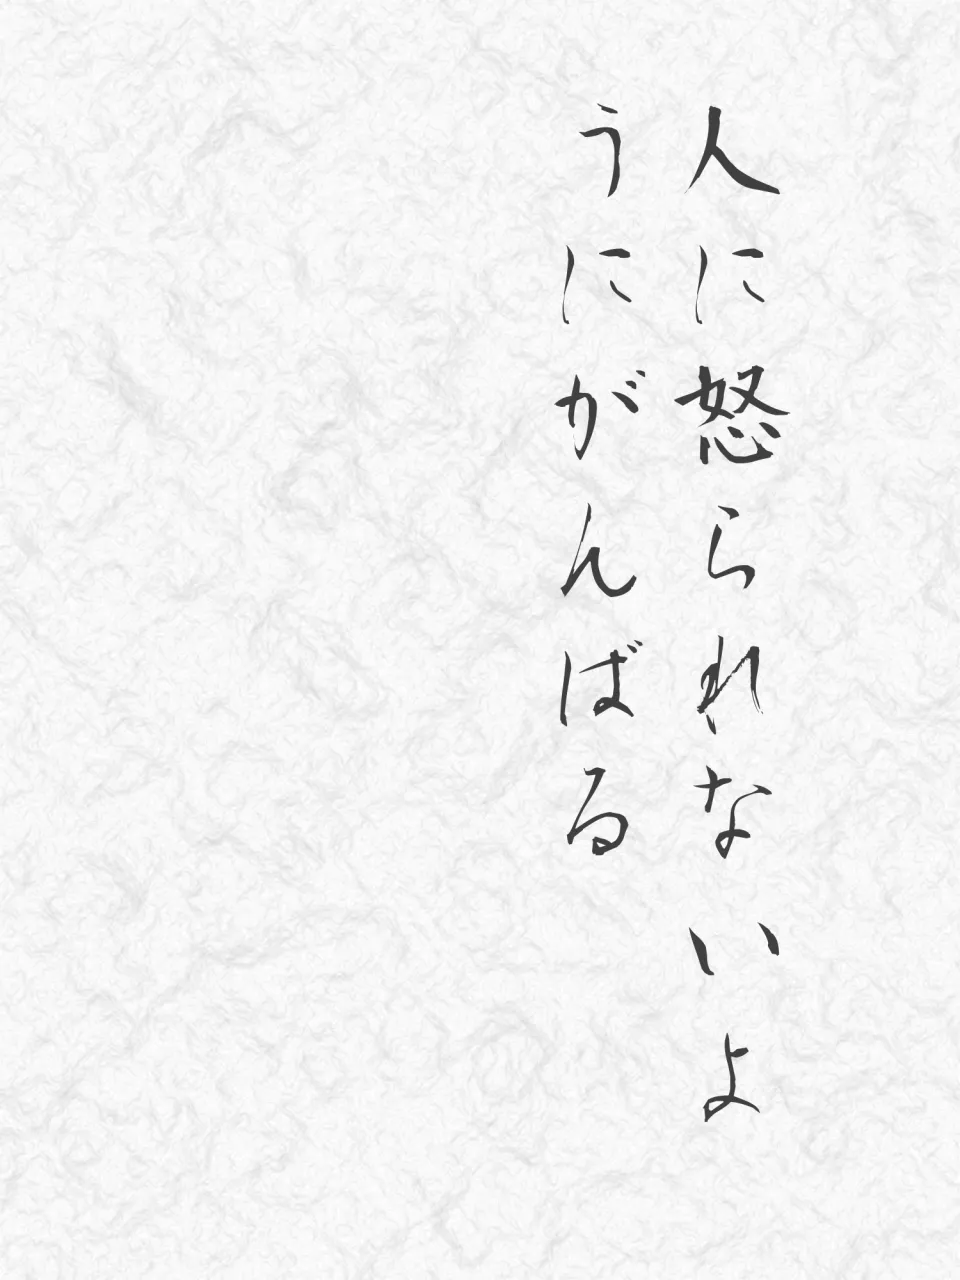 人に怒られないよ
うにがんばる